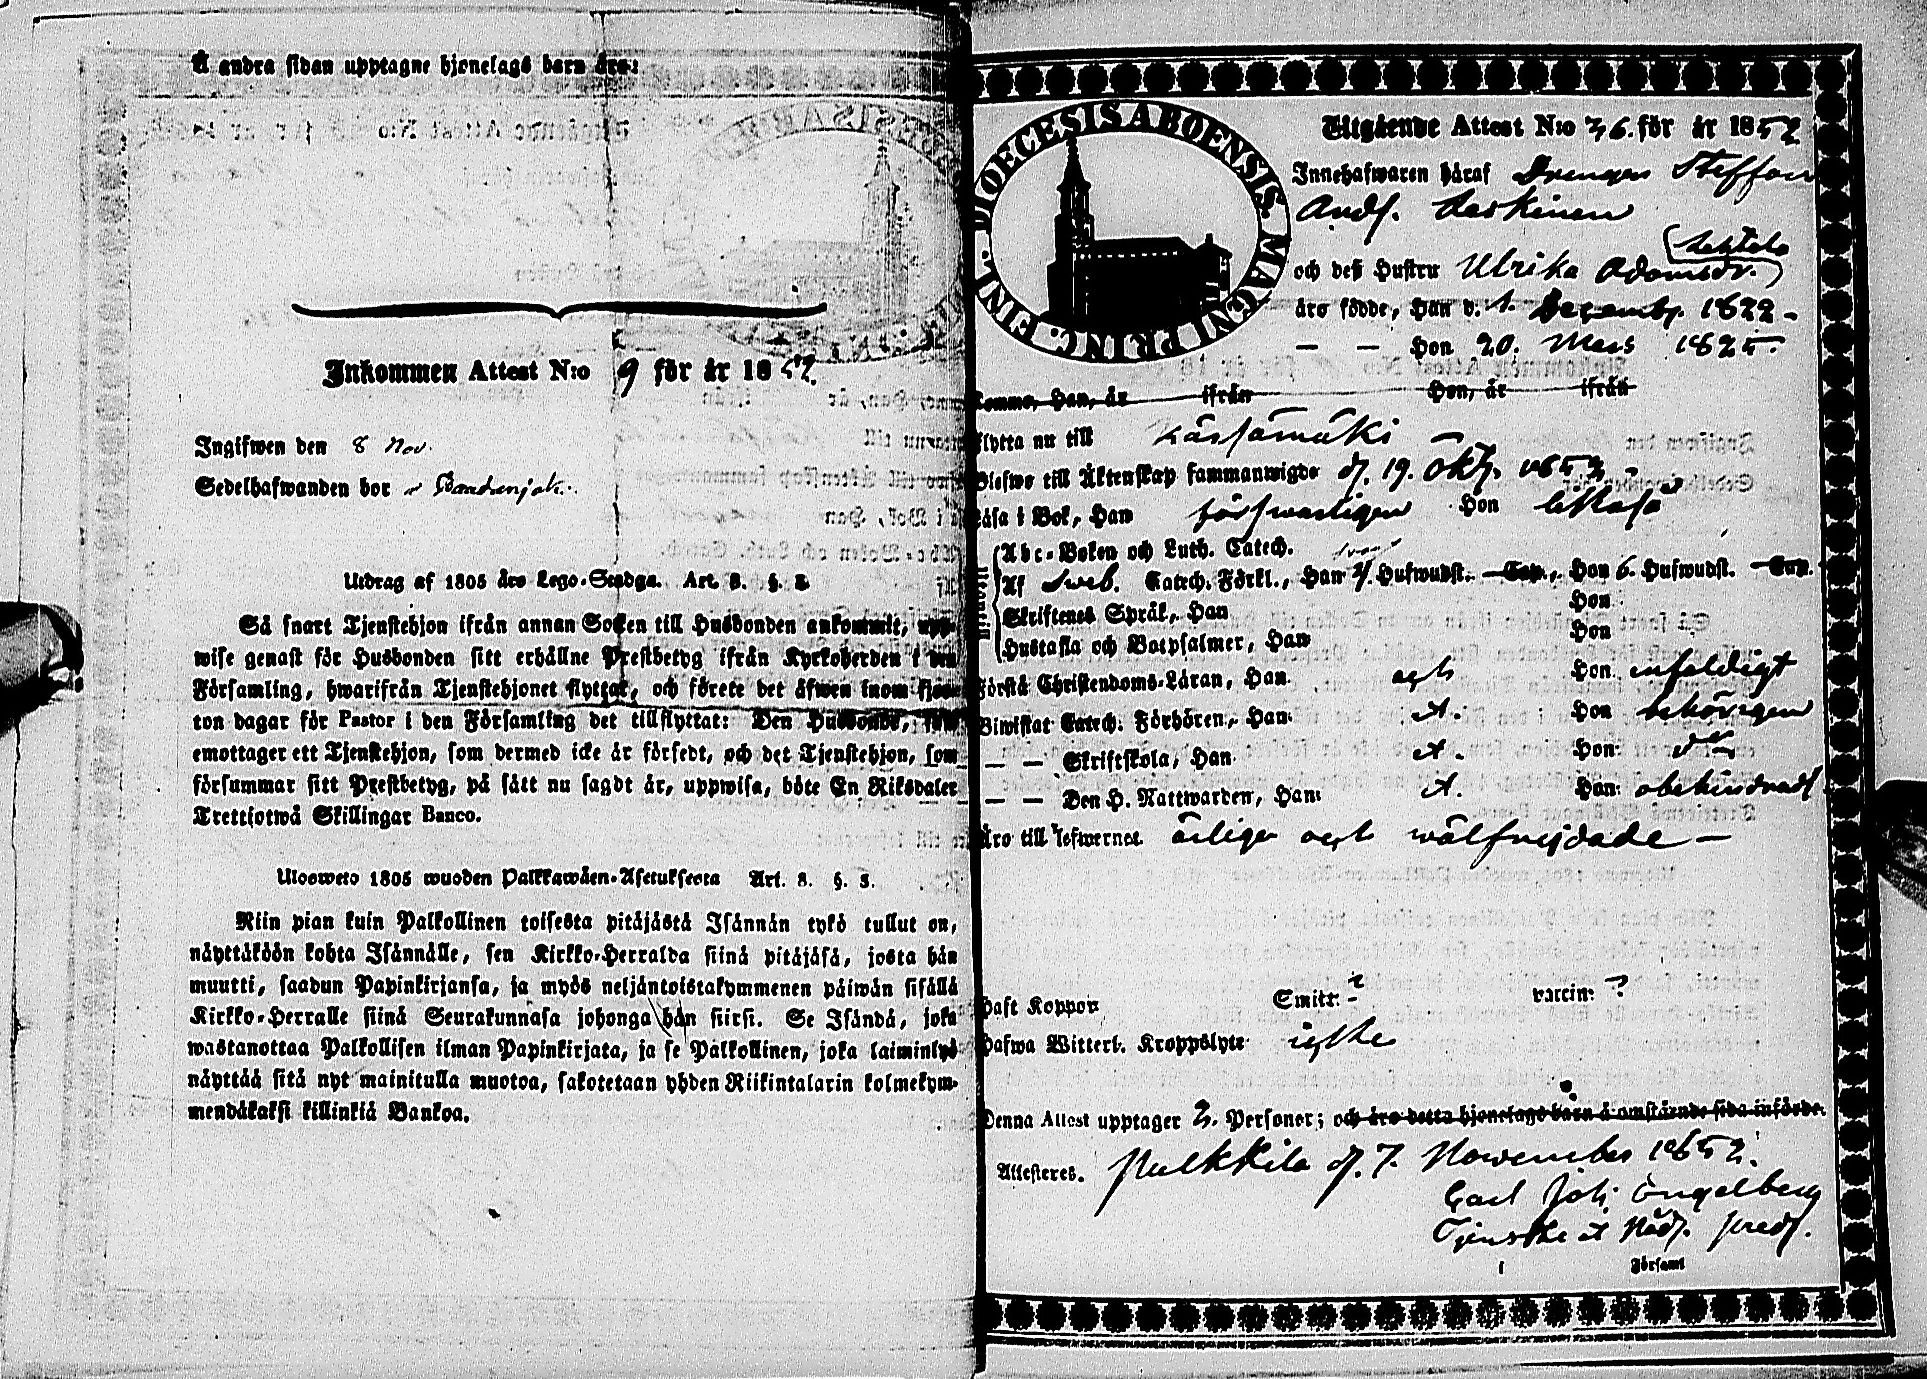 Å andra sidan upptagne hjonelags barn äro:
Inkommen Attest N:o 9 för år 1852.
Ingifwen den 8 Nov.
Sedelhafwanden bor
Utdrag af 1805 års Lego-Stadga. Art. 8. §. 5.
Så snart Tjenstehjon ifrån annan Socken till Husbonden ankommit, upp-
wise genast för Husbonden sitt erhållne Prestbetyg ifrån Kyrkoherden i den
Församling, hwarifrån Tjenstehjonet flyttat, och förete det äfwen inom fjor-
ton dagar för Pastor i den Församling det tillflyttat: Den Husbonde, som
emottager ett Tjenstehjon, som dermed icke är försedt, och det Tjenstehjon, som
försummar sitt Prestbetyg, på sätt nu sagdt är, uppwisa, böte En Riksdaler
Trettiotwå Skillingar Banco.
Uloswето 1805 wuoden Palkkawäen-Asetuksesta Art. 8. §. 5.
Niin pian kuin Palkollinen toisesta pitäjästä Isännän tykö tullut on,
näyttäköön kohta Isännälle, sen Kirkko-Herralda siinä pitäjäsä, josta hän
muutti, saadun Papinkirjansa, ja myös neljäntoistakymmenen päiwän sisällä
Kirkko-Herralle siinä Seurakunnasa johonga hän siirsi. Se Isändä, joka
wastanottaa Palkollisen ilman Papinkirjata, ja se Palkollinen, joka laiminlyö
näyttää sitä nyt mainitulla muotoa, sakotetaan yhden Riikintalarin kolmekym-
mendäkaksi killinkiä Bankoa.
DIOECESIS ABOENSIS. MAGNI PRINC. FINL.
Utgående Attest N:o 36. för år 1852
Innehafwaren häraf Drengen Steffan
Andf. Laskinen
och dess Hustru Ulrika Adamsdr.
äro födde, Han d. 1. Decemb. 1822 -
— — Hon 20. Mars 1825.
Komma, Han, år ifrån Hon, år ifrån
Flytta nu till Kärsämäki
Blefwo till Äktenskap sammanwigde d. 19. Okt. 1852
Läsa i Bok, Han försvarligen Hon likaså
Abc-Boken och Luth. Catech.
Af Sweb. Catech. Förkl., Han Hufwudst. Cap., Hon 6. Hufwudst. Cap.
Skriftenes Språk, Han Hon
Hustafla och Botpsalmer, Han Hon
Förstå Christendoms-Läran, Han och Hon enfaldigt
Biwistat Catech. Förhören, Han Hon behörigen
— — Skriftskola, Han Hon
— — Den H. Nattwarden, Han Hon obehindrad
Äro till lefwernet ärliga och wälfrejdade —
Haft Koppor Smitt: ? vaccin: ?
Hafwa Witterl. Kroppslyte icke
Denna Attest upptager 2. Personer; och äro detta hjonelags barn å omstående sida införde.
Attesteres. Pulkkila d. 7. November 1852.
Carl Joh. Engelberg
Tjenstf. at Nåd. pred.
i Församl